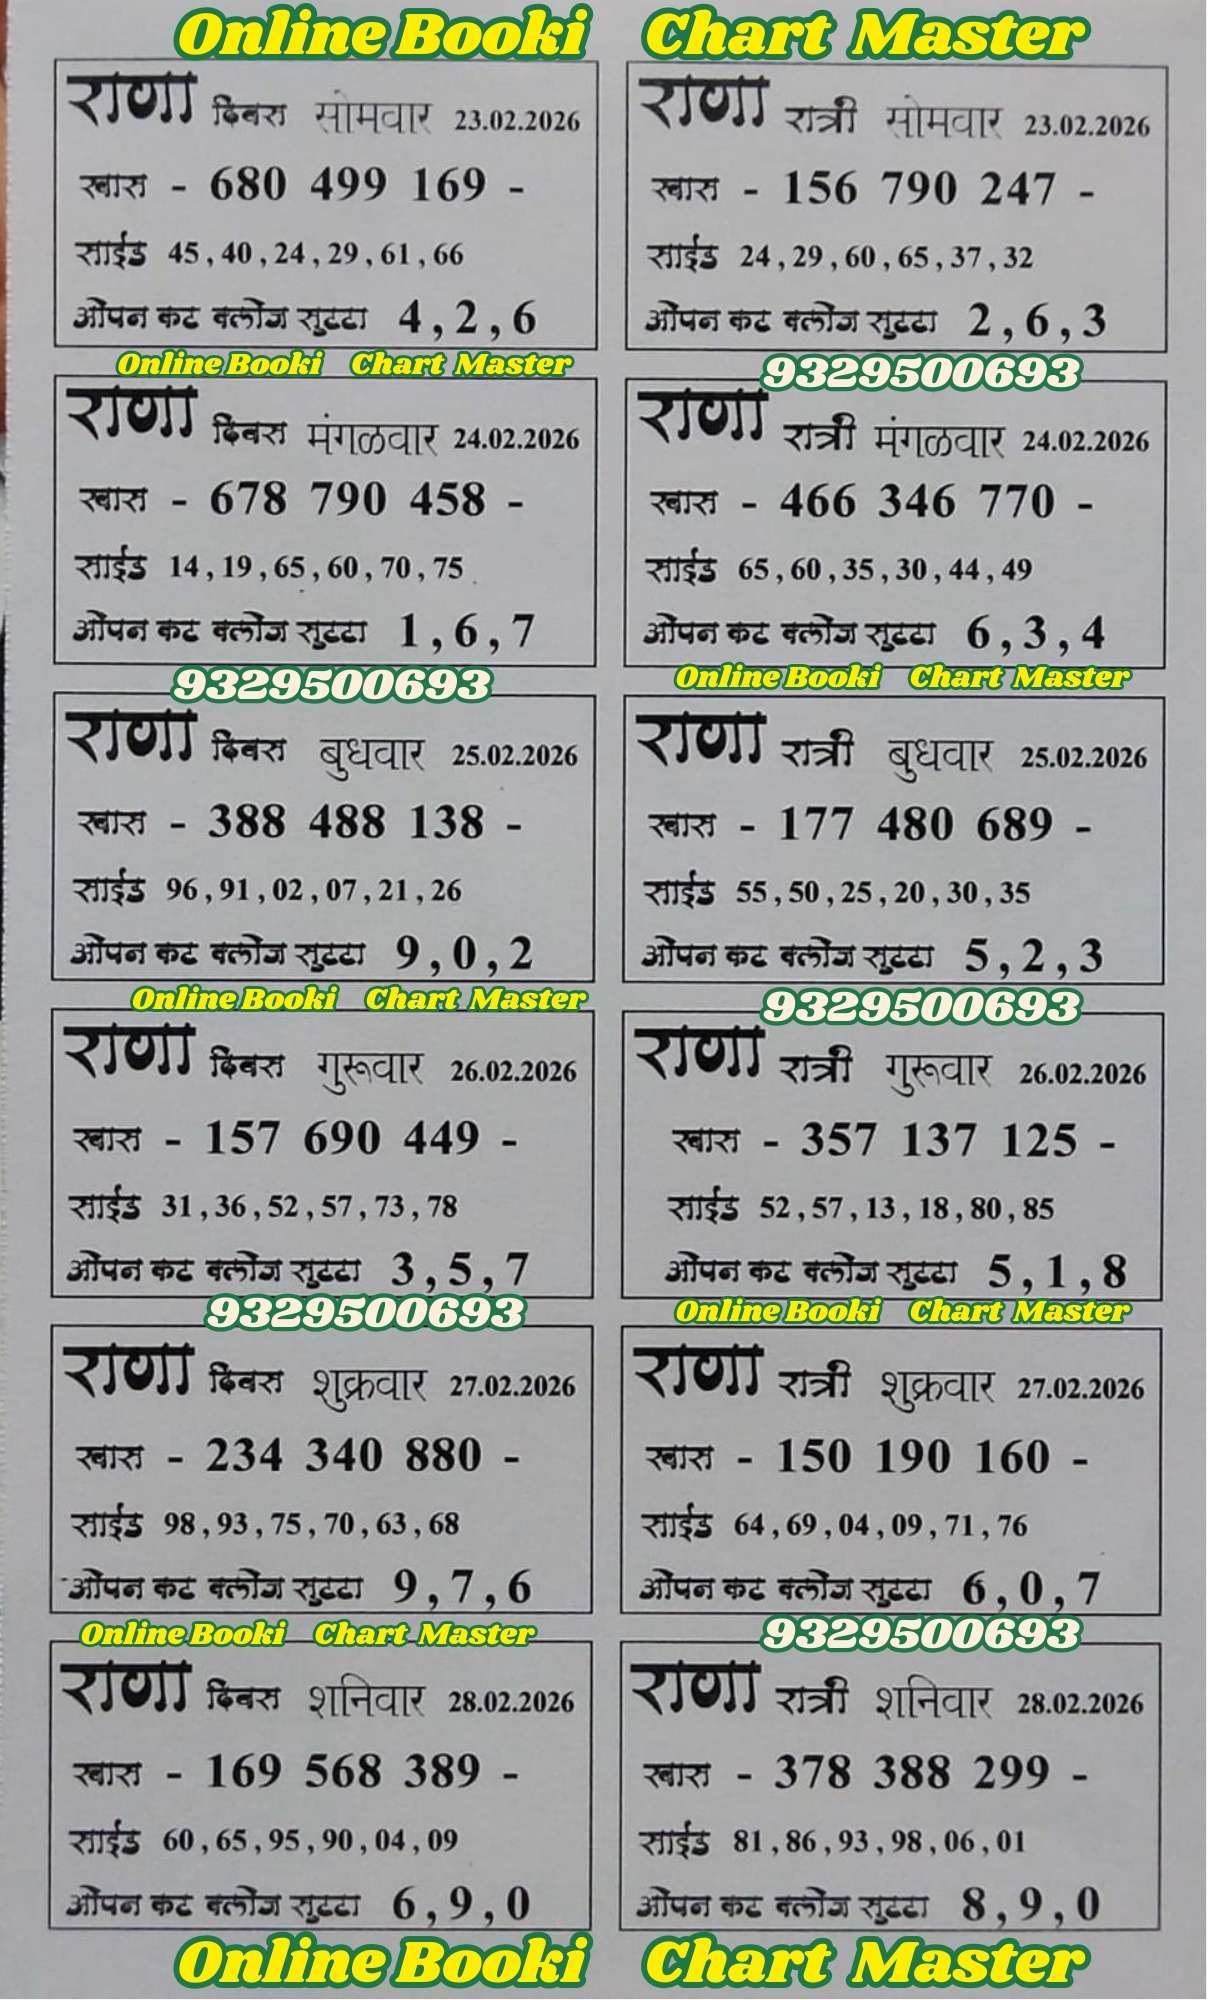 Online Booki Chart Master
राणा दिवस सोमवार 23.02.2026
खास - 680 499 169 -
साईड 45 , 40 , 24 , 29 , 61 , 66
ओपन कट क्लोज सुटटा 4 , 2 , 6
राणा रात्री सोमवार 23.02.2026
खास - 156 790 247 -
साईड 24 , 29 , 60 , 65 , 37 , 32
ओपन कट क्लोज सुटटा 2 , 6 , 3
Online Booki Chart Master
9329500693
राणा दिवस मंगळवार 24.02.2026
खास - 678 790 458 -
साईड 14 , 19 , 65 , 60 , 70 , 75
ओपन कट क्लोज सुटटा 1 , 6 , 7
राणा रात्री मंगळवार 24.02.2026
खास - 466 346 770 -
साईड 65 , 60 , 35 , 30 , 44 , 49
ओपन कट क्लोज सुटटा 6 , 3 , 4
9329500693
Online Booki Chart Master
राणा दिवस बुधवार 25.02.2026
खास - 388 488 138 -
साईड 96 , 91 , 02 , 07 , 21 , 26
ओपन कट क्लोज सुटटा 9 , 0 , 2
राणा रात्री बुधवार 25.02.2026
खास - 177 480 689 -
साईड 55 , 50 , 25 , 20 , 30 , 35
ओपन कट क्लोज सुटटा 5 , 2 , 3
Online Booki Chart Master
9329500693
राणा दिवस गुरूवार 26.02.2026
खास - 157 690 449 -
साईड 31 , 36 , 52 , 57 , 73 , 78
ओपन कट क्लोज सुटटा 3 , 5 , 7
राणा रात्री गुरूवार 26.02.2026
खास - 357 137 125 -
साईड 52 , 57 , 13 , 18 , 80 , 85
ओपन कट क्लोज सुटटा 5 , 1 , 8
9329500693
Online Booki Chart Master
राणा दिवस शुक्रवार 27.02.2026
खास - 234 340 880 -
साईड 98 , 93 , 75 , 70 , 63 , 68
ओपन कट क्लोज सुटटा 9 , 7 , 6
राणा रात्री शुक्रवार 27.02.2026
खास - 150 190 160 -
साईड 64 , 69 , 04 , 09 , 71 , 76
ओपन कट क्लोज सुटटा 6 , 0 , 7
Online Booki Chart Master
9329500693
राणा दिवस शनिवार 28.02.2026
खास - 169 568 389 -
साईड 60 , 65 , 95 , 90 , 04 , 09
ओपन कट क्लोज सुटटा 6 , 9 , 0
राणा रात्री शनिवार 28.02.2026
खास - 378 388 299 -
साईड 81 , 86 , 93 , 98 , 06 , 01
ओपन कट क्लोज सुटटा 8 , 9 , 0
Online Booki Chart Master